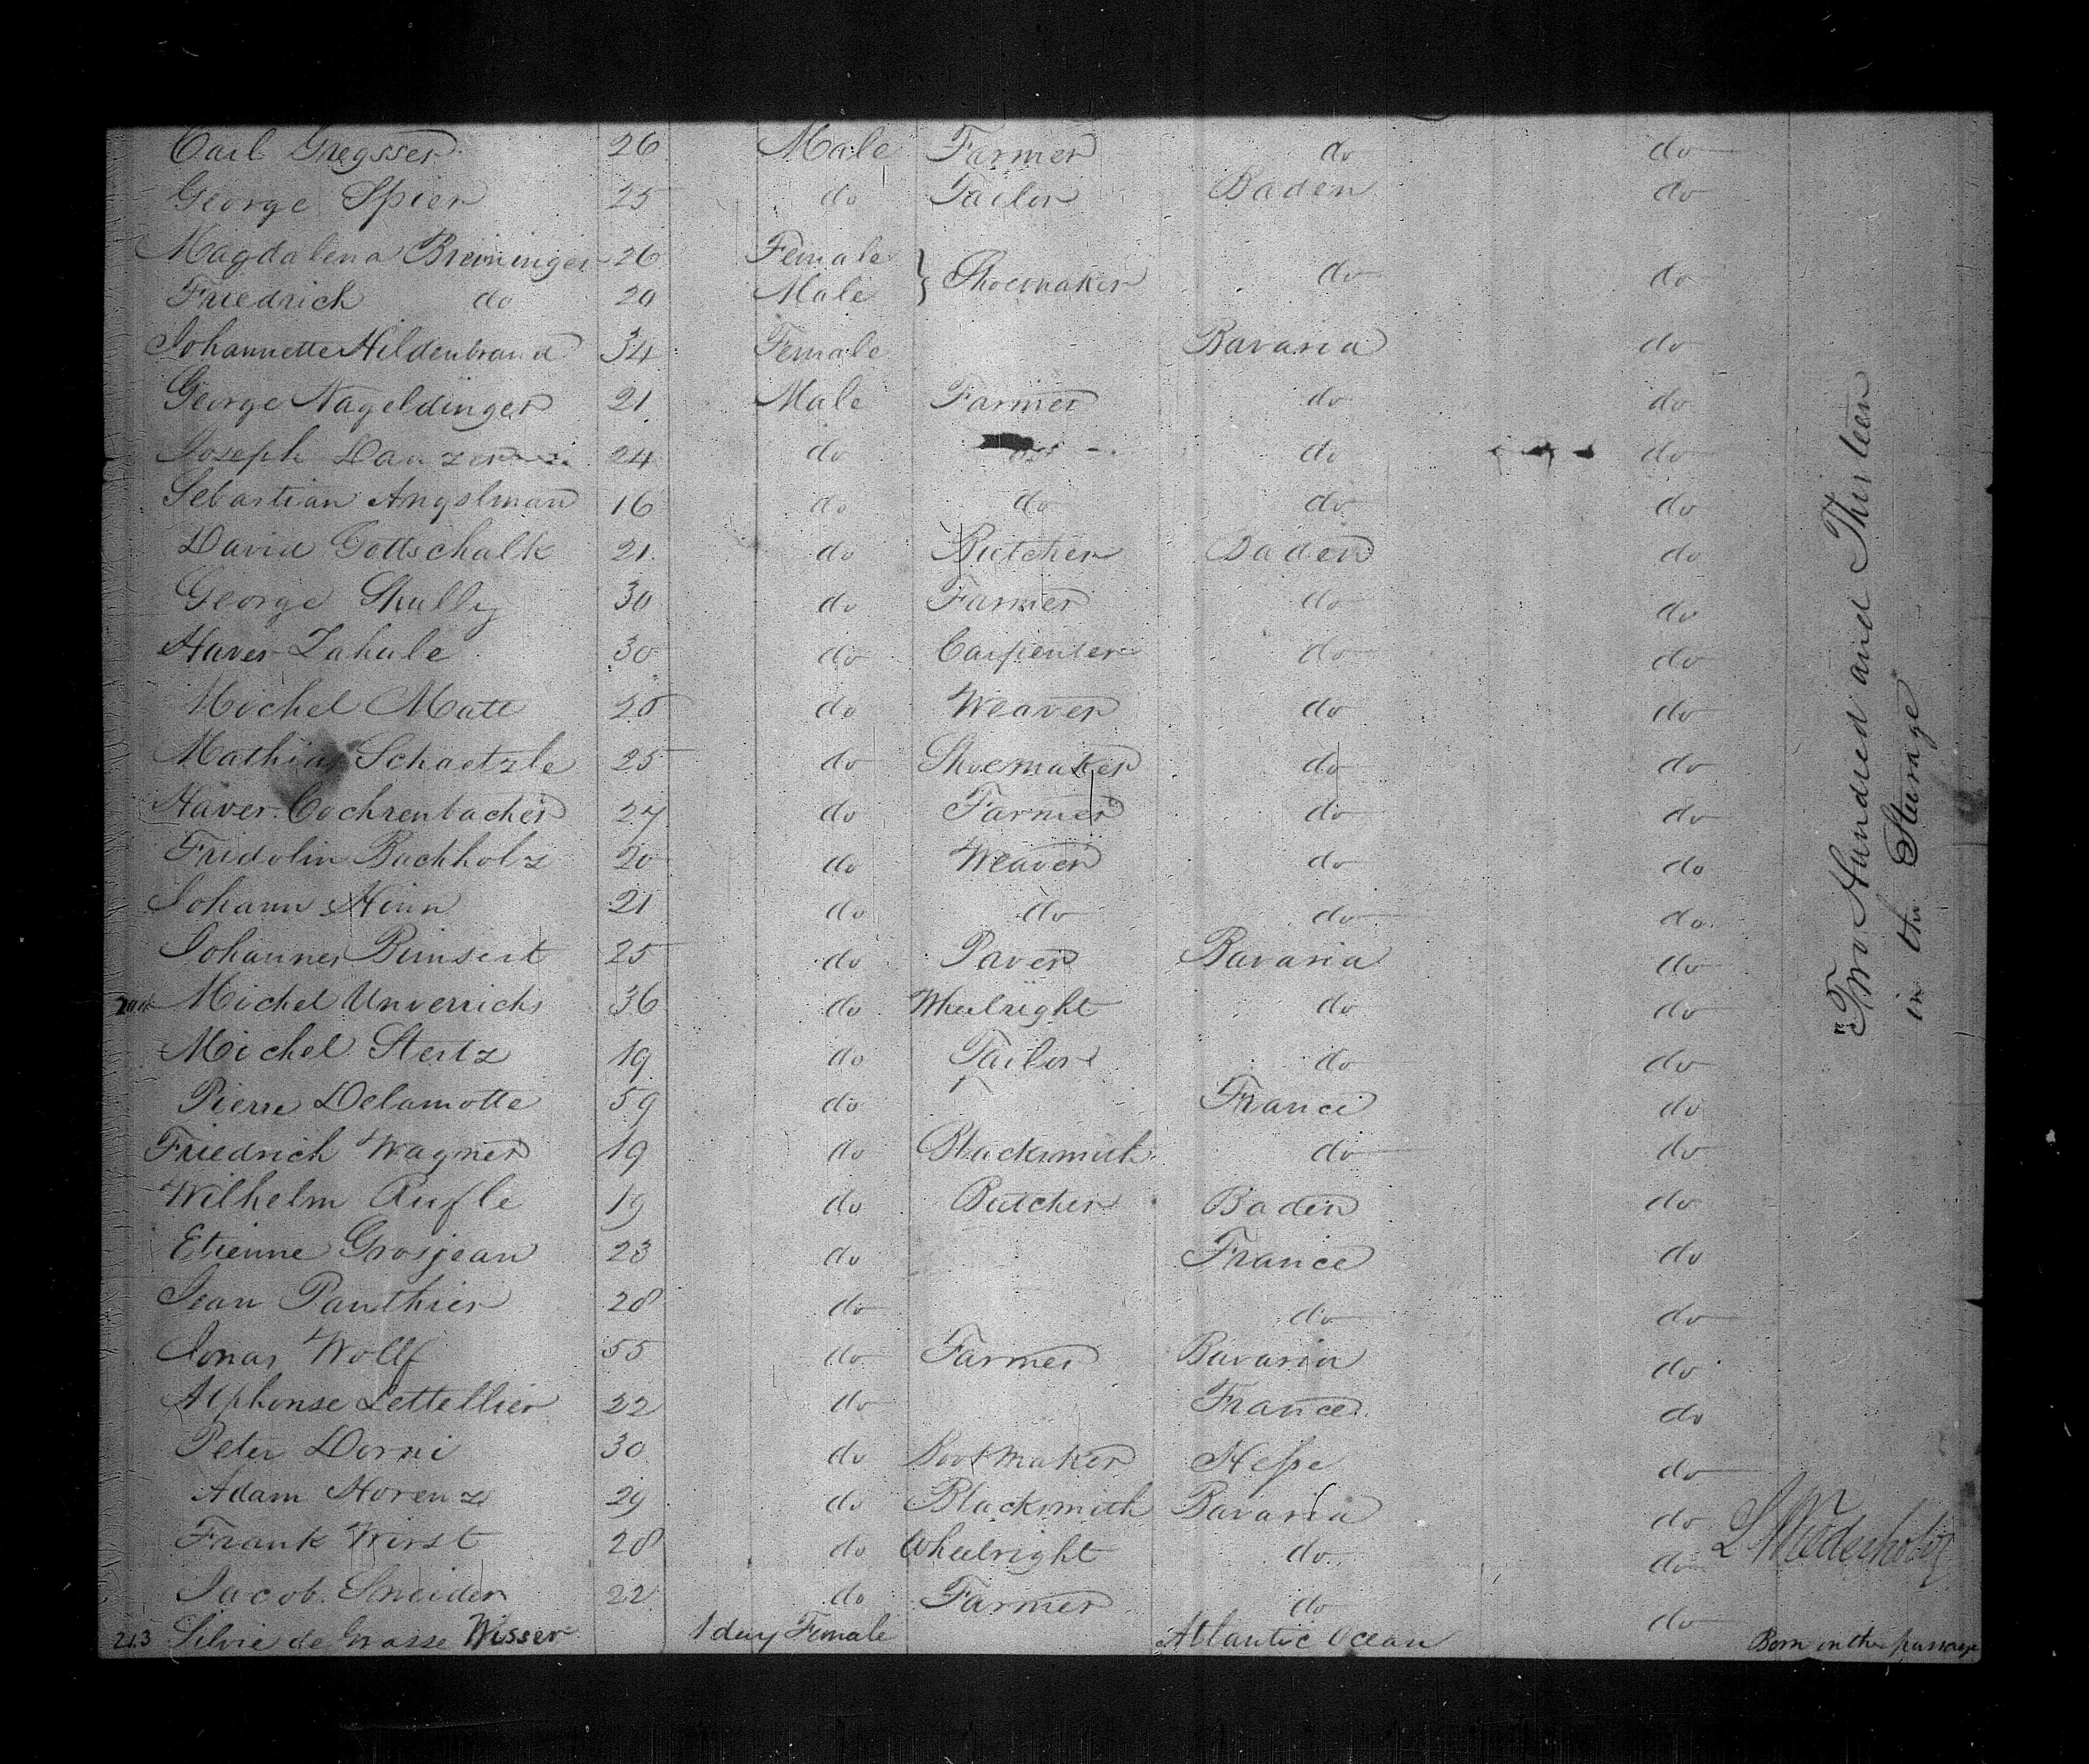 Carl Gregsser 26 Male Farmer do do
George Spier 25 do Tailor Baden do
Magdalena Breininger 26 Female } Shoemaker do do
Friedrich do 20 Male
Johannette Hildenbrand 34 Female Bavaria do
George Nageldinger 21 Male Farmer do do
Joseph Danzer 24 do do do
Sebastian Angslman 16 do do do do
David Gottschalk 21 do Butcher Baden do
George Skully 30 do Farmer do do
Haver Zahule 30 do Carpenter do do
Michel Matt 28 do Weaver do do
Mathias Schaetzle 25 do Shoemaker do do
Haver Cochrenbacher 27 do Farmer do do
Fridolin Buchholz 20 do Weaver do do
Johann Hinn 21 do do do do
Johannes Bimsert 25 do Paver Bavaria do
Michel Unverrich 36 do Wheelright do do
Michel Stertz 19 do Tailor do do
Pierre Delamotte 59 do France do
Friedrich Wagner 19 do Blacksmith do do
Wilhelm Rufle 19 do Butcher Baden do
Etienne Grosjean 23 do France do
Jean Panthier 28 do do do
Jonas Wolff 55 do Farmer Bavaria do
Alphonse Lettellier 22 do France do
Peter Dorni 30 do Bootmaker Hesse do
Adam Horenz 29 do Blacksmith Bavaria do
Frank Wirst 28 do Wheelright do do
Jacob Sneider 22 do Farmer do do
213 Silvie de Grasse Wisser 1 day Female Atlantic Ocean Born on the passage
Two Hundred and Thirteen
in the Steerage